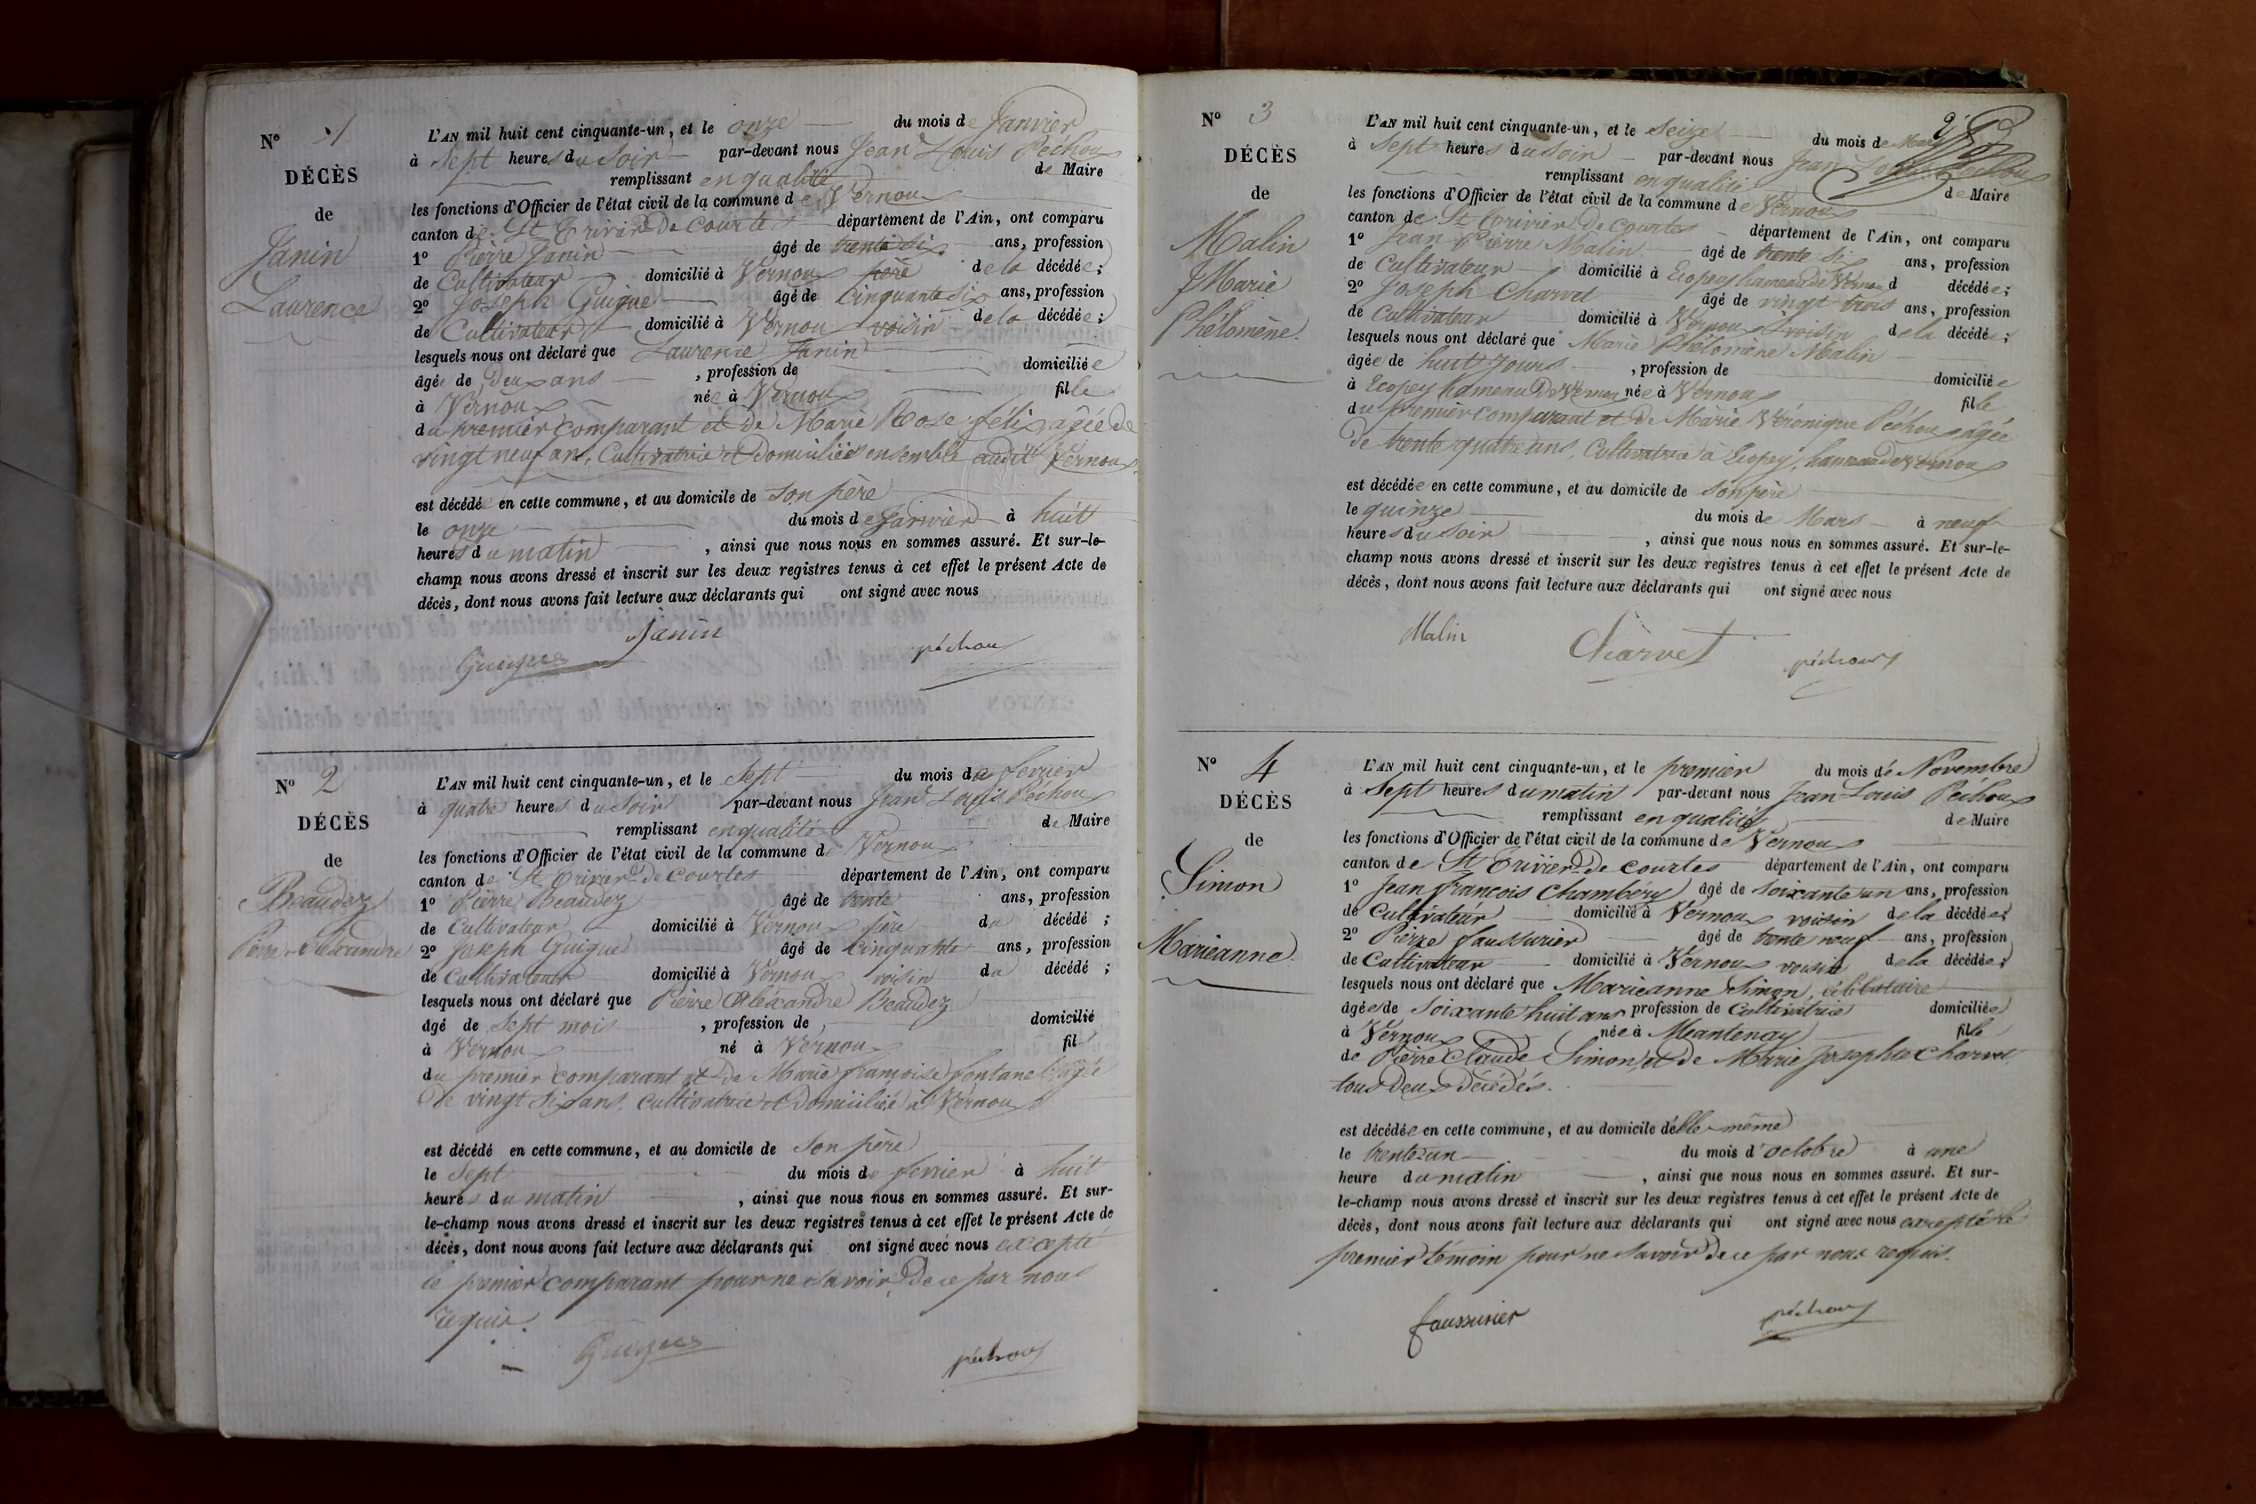 N° 1
DÉCÈS
de
Janin
Laurence
L'AN mil huit cent cinquante-un, et le onze du mois de Janvier
à Sept heures du Soir par-devant nous Jean Louis Péchoux
remplissant en qualité de Maire
les fonctions d'Officier de l'état civil de la commune de Vernoux
canton de St Trivier de Courtes département de l'Ain, ont comparu
1° Pierre Janin âgé de trente six ans, profession
de Cultivateur domicilié à Vernoux père de la décédée;
2° Joseph Guigue âgé de Cinquante six ans, profession
de Cultivateur domicilié à Vernoux voisin de la décédée;
lesquels nous ont déclaré que Laurence Janin
âgée de Deux ans, profession de domiciliée
à Vernoux née à Vernoux fille
du premier comparant et de Marie Rose félix agée de
vingt neuf ans, Cultivatrice et Domiciliés ensemble audit Vernoux
est décédé en cette commune, et au domicile de son père
le onze du mois de Janvier à huit
heures du matin, ainsi que nous nous en sommes assuré. Et sur-le-
champ nous avons dressé et inscrit sur les deux registres tenus à cet effet le présent Acte de
décès, dont nous avons fait lecture aux déclarants qui ont signé avec nous
Janin
Guigue péchoux
N° 2
DÉCÈS
de
Beaudez
Pierre Alexandre
L'AN mil huit cent cinquante-un, et le Sept du mois de fevrier
à quatre heures du Soir par-devant nous Jean Louis Péchoux
remplissant en qualité de Maire
les fonctions d'Officier de l'état civil de la commune de Vernoux
canton de St Trivier de Courtes département de l'Ain, ont comparu
1° Pierre Beaudez âgé de trente ans, profession
de Cultivateur domicilié à Vernoux père du décédé;
2° Joseph Guigue âgé de Cinquante ans, profession
de Cultivateur domicilié à Vernoux voisin du décédé;
lesquels nous ont déclaré que Pierre Alexandre Beaudez
âgé de Sept mois, profession de domicilié
à Vernoux né à Vernoux fils
du premier comparant et de Marie françoise fontanel agée
de vingt six ans, cultivatrice et domiciliée à Vernoux
est décédé en cette commune, et au domicile de son père
le Sept du mois de fevrier à huit
heures du matin, ainsi que nous nous en sommes assuré. Et sur-
le-champ nous avons dressé et inscrit sur les deux registres tenus à cet effet le présent Acte de
décès, dont nous avons fait lecture aux déclarants qui ont signé avec nous excepté
le premier comparant pour ne savoir de ce par nous
requis.
Guigue péchoux
N° 3
DÉCÈS
de
Malin
Marie
Phélomène.
L'AN mil huit cent cinquante-un, et le Seize du mois de Mars
à Sept heures du Soir par-devant nous Jean Louis Péchoux
remplissant en qualité de Maire
les fonctions d'Officier de l'état civil de la commune de Vernoux
canton de St Trivier de Courtes département de l'Ain, ont comparu
1° Jean Pierre Malin âgé de trente six ans, profession
de Cultivateur domicilié à Ecopey hameau de Vernoux d décédée;
2° Joseph Charvet âgé de vingt trois ans, profession
de Cultivateur domicilié à Vernoux voisin de la décédée;
lesquels nous ont déclaré que Marie Phélomène Malin
âgée de huit Jours, profession de domiciliée
à Ecopey hameau de Vernoux née à Vernoux fille
du premier comparant et de Marie Véronique Péchoux agée
de trente quatre ans, Cultivatrice à Ecopey, hameau de Vernoux
est décédée en cette commune, et au domicile de son père
le quinze du mois de Mars à neuf
heures du Soir, ainsi que nous nous en sommes assuré. Et sur-le-
champ nous avons dressé et inscrit sur les deux registres tenus à cet effet le présent Acte de
décès, dont nous avons fait lecture aux déclarants qui ont signé avec nous
Malin Charvet péchoux
N° 4
DÉCÈS
de
Simon
Marieanne.
L'AN mil huit cent cinquante-un, et le premier du mois de Novembre
à Sept heures du matin par-devant nous Jean Louis Péchoux
remplissant en qualité de Maire
les fonctions d'Officier de l'état civil de la commune de Vernoux
canton de St Trivier de Courtes département de l'Ain, ont comparu
1° Jean françois Chambéry âgé de soixante un ans, profession
de Cultivateur domicilié à Vernoux voisin de la décédée;
2° Pierre faussurier âgé de trente neuf ans, profession
de Cultivateur domicilié à Vernoux voisin de la décédée;
lesquels nous ont déclaré que Marieanne Simon, célibataire
âgée de soixante huit ans profession de Cultivatrice domiciliée
à Vernoux née à Mantenay fille
de Pierre Claude Simon et de Marie Josephte Charvet
tous deux décédés.
est décédée en cette commune, et au domicile d'elle-même
le trente-un du mois d'octobre à une
heure du matin, ainsi que nous nous en sommes assuré. Et sur-
le-champ nous avons dressé et inscrit sur les deux registres tenus à cet effet le présent Acte de
décès, dont nous avons fait lecture aux déclarants qui ont signé avec nous excepté le
premier témoin pour ne savoir de ce par nous requis.
faussurier péchoux